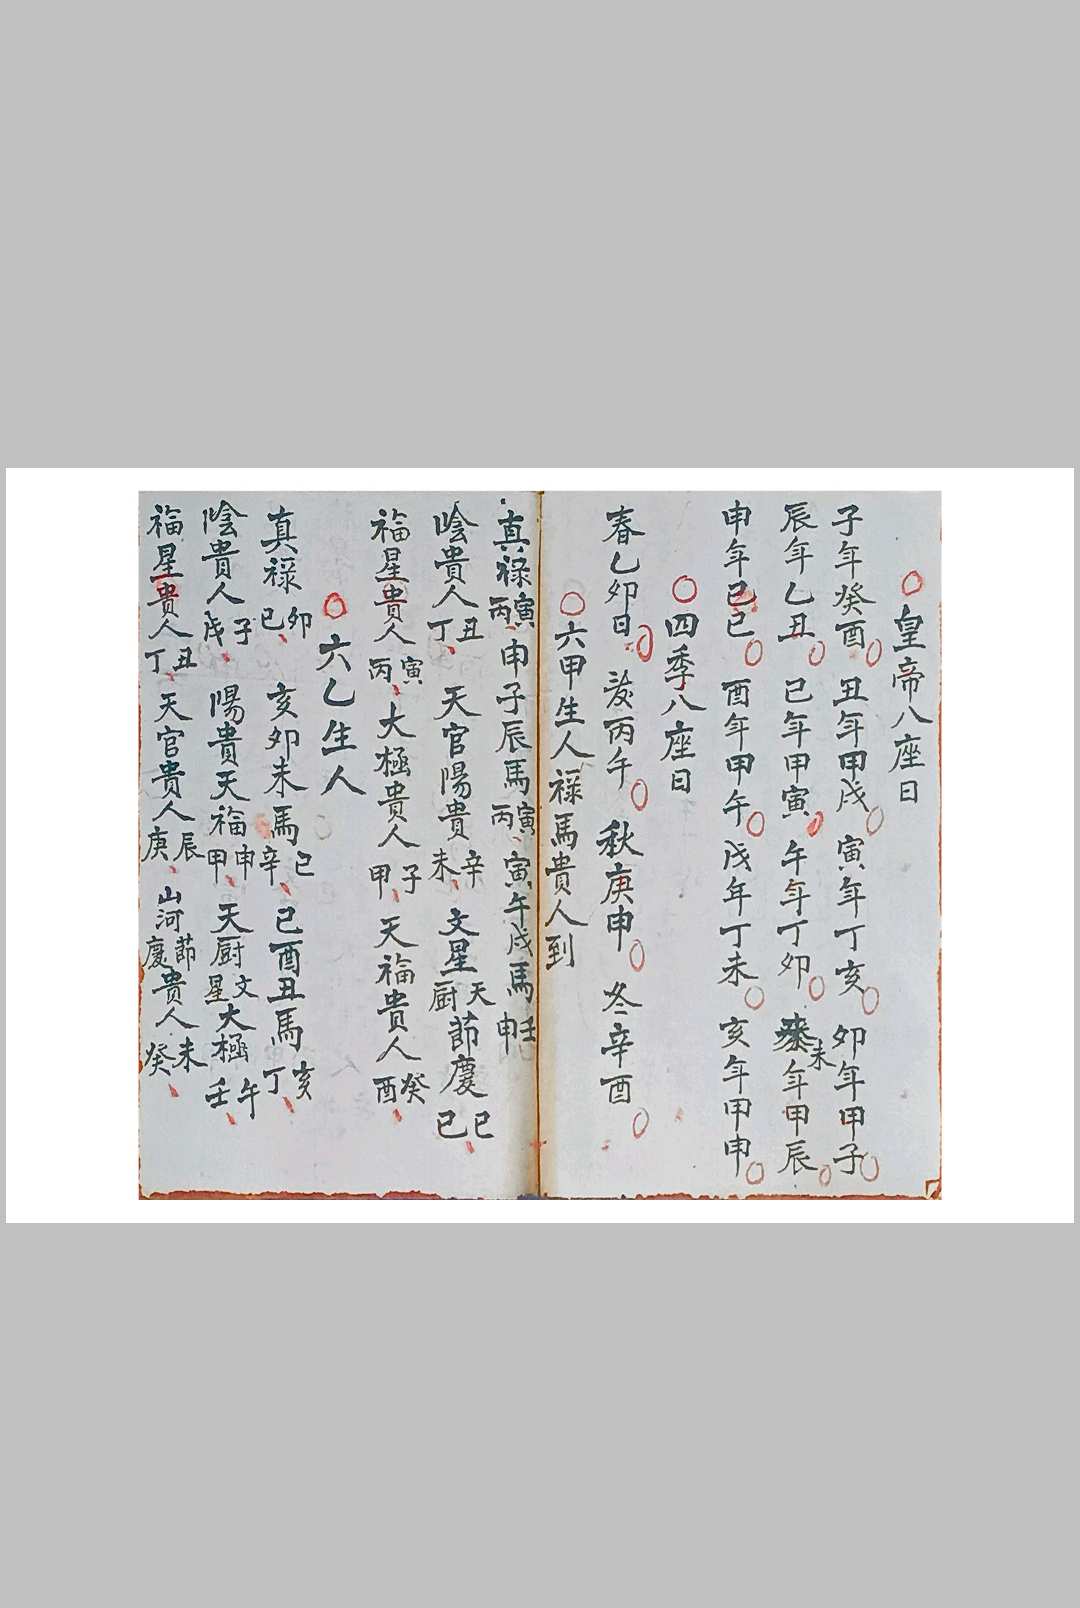 皇帝八座日
子年癸酉 丑年甲戌 寅年丁亥 卯年甲子
辰年乙丑 巳年甲寅 午年丁卯 未年甲辰
申年己巳 酉年甲午 戌年丁未 亥年甲申
四季八座日
春乙卯日 夏丙午 秋庚申 冬辛酉
六甲生人祿馬貴人到
真祿丙寅 申子辰馬丙寅 寅午戌馬壬申
陰貴人丁丑 天官陽貴辛未 文星天厨節慶己巳
福星貴人丙寅 大極貴人甲子 天福貴人癸酉
六乙生人
真祿己卯 亥卯未馬辛巳 巳酉丑馬丁亥
陰貴人戊子 陽貴天福甲申 天厨文星大極壬午
福星貴人丁丑 天官貴人庚辰 山河節慶貴人癸未